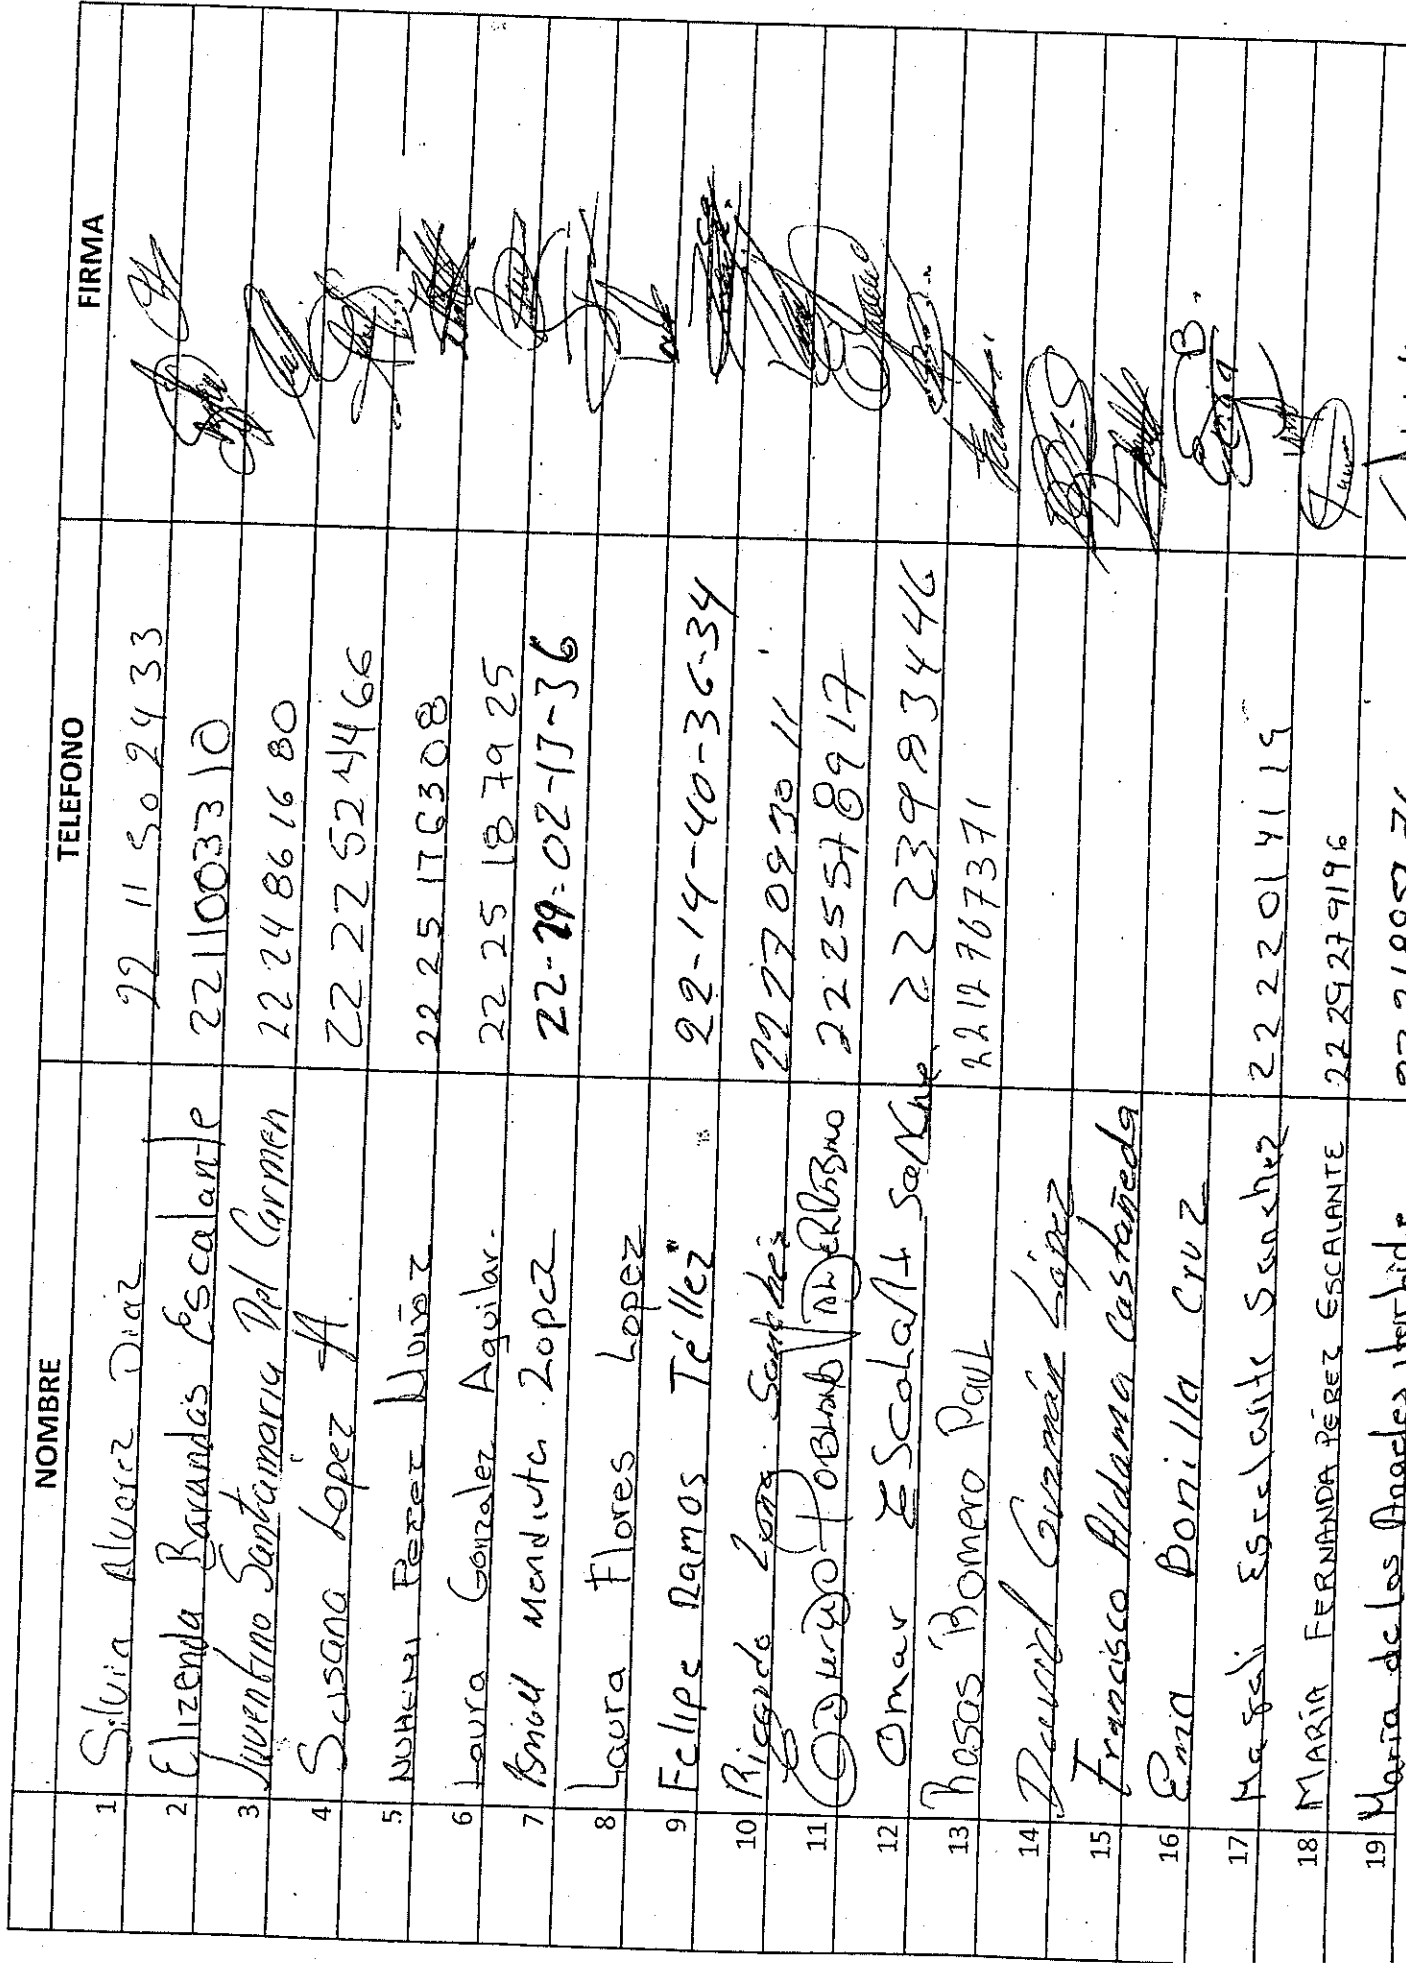 NOMBRE TELEFONO FIRMA
1 Silvia Alvarez Diaz 22 11 50 24 33
2 Elizenda Barandas Escalante 2211003310
3 Juventino Santamaria Del Carmen 22 24 86 16 80
4 Susana Lopez A. 22 22 52 44 66
5 NOHEMI Perez Nuñoz 22 25 176308
6 Laura Gonzalez Aguilar. 22 25 18 79 25
7 Mendieta Lopez 22-29-02-13-36
8 Laura Flores Lopez
9 Felipe Ramos Téllez 22-14-40-36-34
10 Ricardo Luna Sanchez 22 27 09 30 11
11 2225578917
12 Omar Escalante 2223983446
13 Rosas Romero Paul 2212767371
14 David Guzmán López
15 Francisco Aldama Castañeda
16 Ema Bonilla Cruz Ema B.
17 Magali Escalante Sanchez 22 22 01 41 19
18 MARÍA FERNANDA PÉREZ ESCALANTE 22 29 27 91 96
19 María de los Angeles